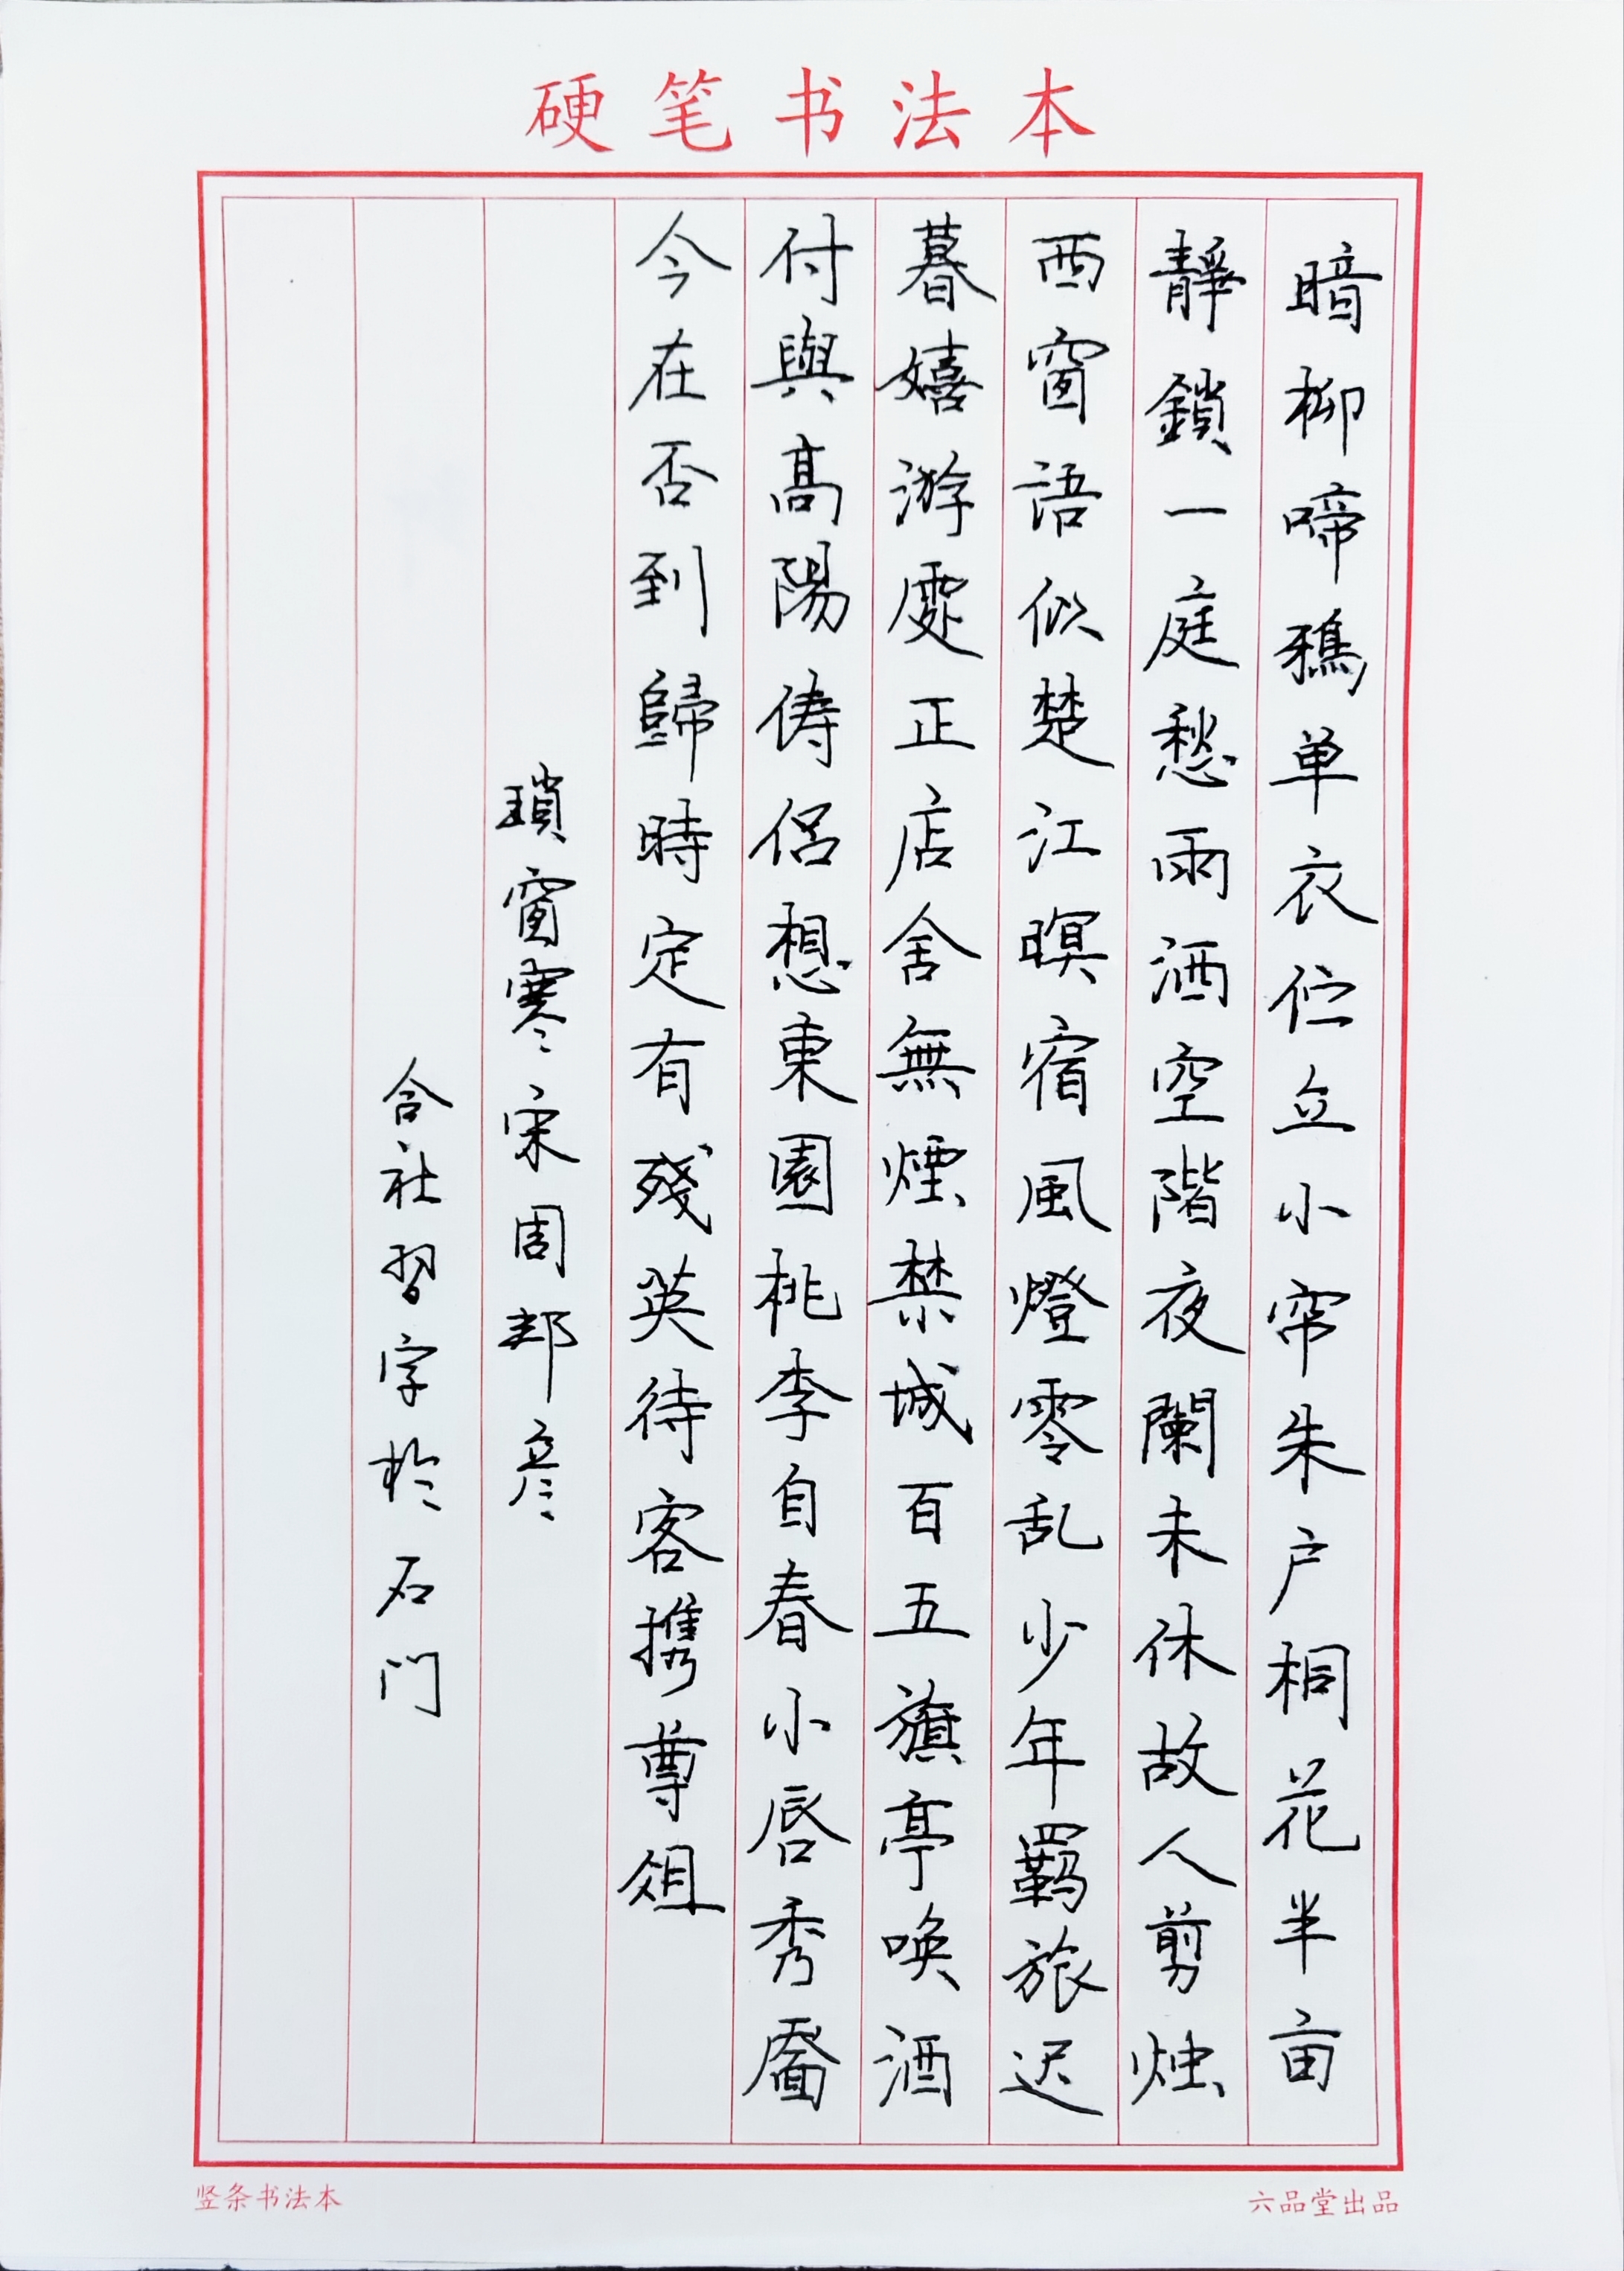 硬笔书法本
暗柳啼鴉单衣伫立小帘朱户桐花半亩
靜鎖一庭愁雨洒空階夜闌未休故人剪烛
西窗語似楚江暝宿風燈零乱少年羁旅迟
暮嬉游處正店舍無煙禁城百五旗亭唤酒
付與高陽儔侣想東園桃李自春小唇秀靨
今在否到歸時定有殘英待客携尊俎
瑣窗寒宋周邦彦
合社習字於石门
竖条书法本
六品堂出品